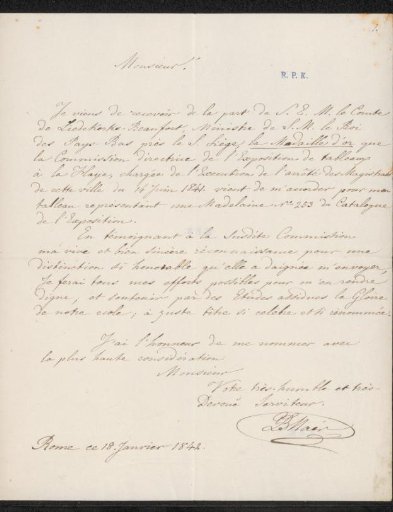 Monsieur.
R. P. K.
Je viens de recevoir de la part de S. E. M. le Comte
de Liedekerke-Beaufort, Ministre de S. M. le Roi
des Pays Bas près le S. Siége, la Medaille d'or que
la Commission directrice de l'Exposition de tableaux
à la Haye, chargée de l'Execution de l'arrêté des Magistrats
de cette ville du 14 Juin 1841 vient de m'accorder pour mon
tableau representant une Madelaine No 253 du Catalogue
de l'Exposition.
En témoignant à la Susdite Commission
ma vive et bien sincère reconnaissance pour une
distinction si honorable qu'elle a daignée m'envoyer,
Je ferai tous mes efforts possibles pour m'en rendre
digne, et soutenir par des Etudes assidues la Gloire
de notre ecole; à juste titre si celebre et si renommée.
J'ai l'honneur de me nommer avec
la plus haute considération
Monsieur
Votre très-humble et très
Devoué Serviteur.
Rome ce 18. Janvier 1842.